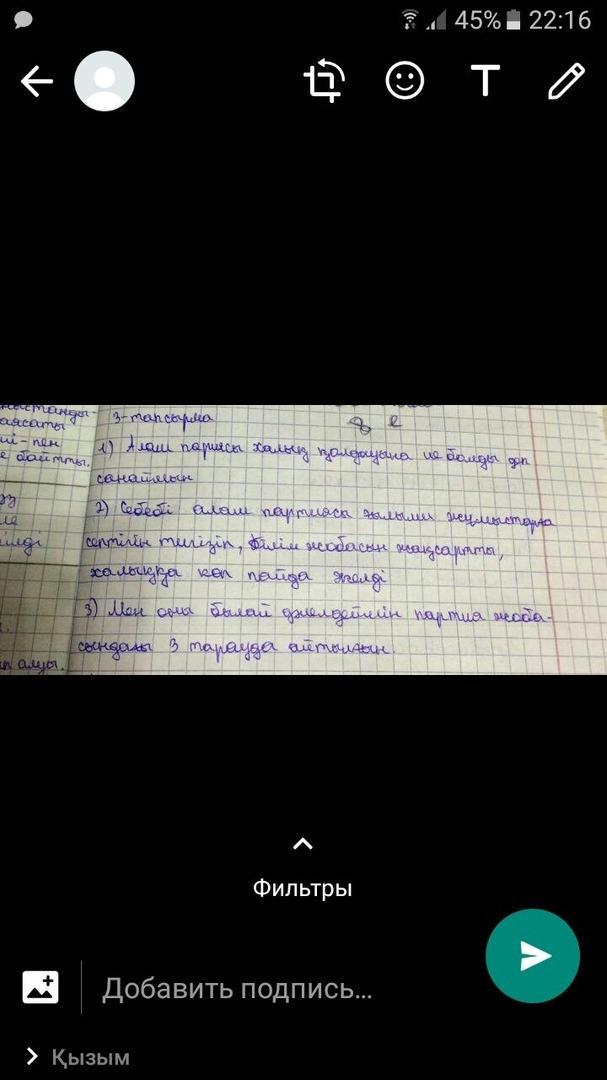 45% 22:16
T
настанды-
аясаты
ші-пен
е байтты.
3-тапсырма
1) Алаш парисы халық қолдауына ие болды деп
санаймын
2) Себебі алаш партиясы ғылыми жұмыстарға
септігін тигізіп, білім жобасын жақсартты,
халыққа көп пайда әкелді
3) Мен оны былай дәлелдеймін партия жоба-
сындағы 3 тарауда айтылған.
ілді
п алуы.
Фильтры
Добавить подпись...
Қызым